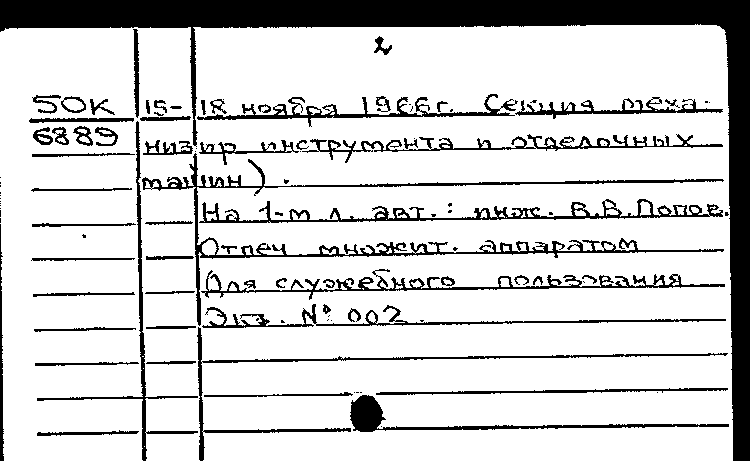 2
50К 15- 18 ноября 1966г. Секция меха-
6889 низир инструмента и отделочных
машин).
На 1-м л. авт.: инж. В.В.Попов.
Отпеч множит. аппаратом
Для служебного пользования
Экз. № 002.